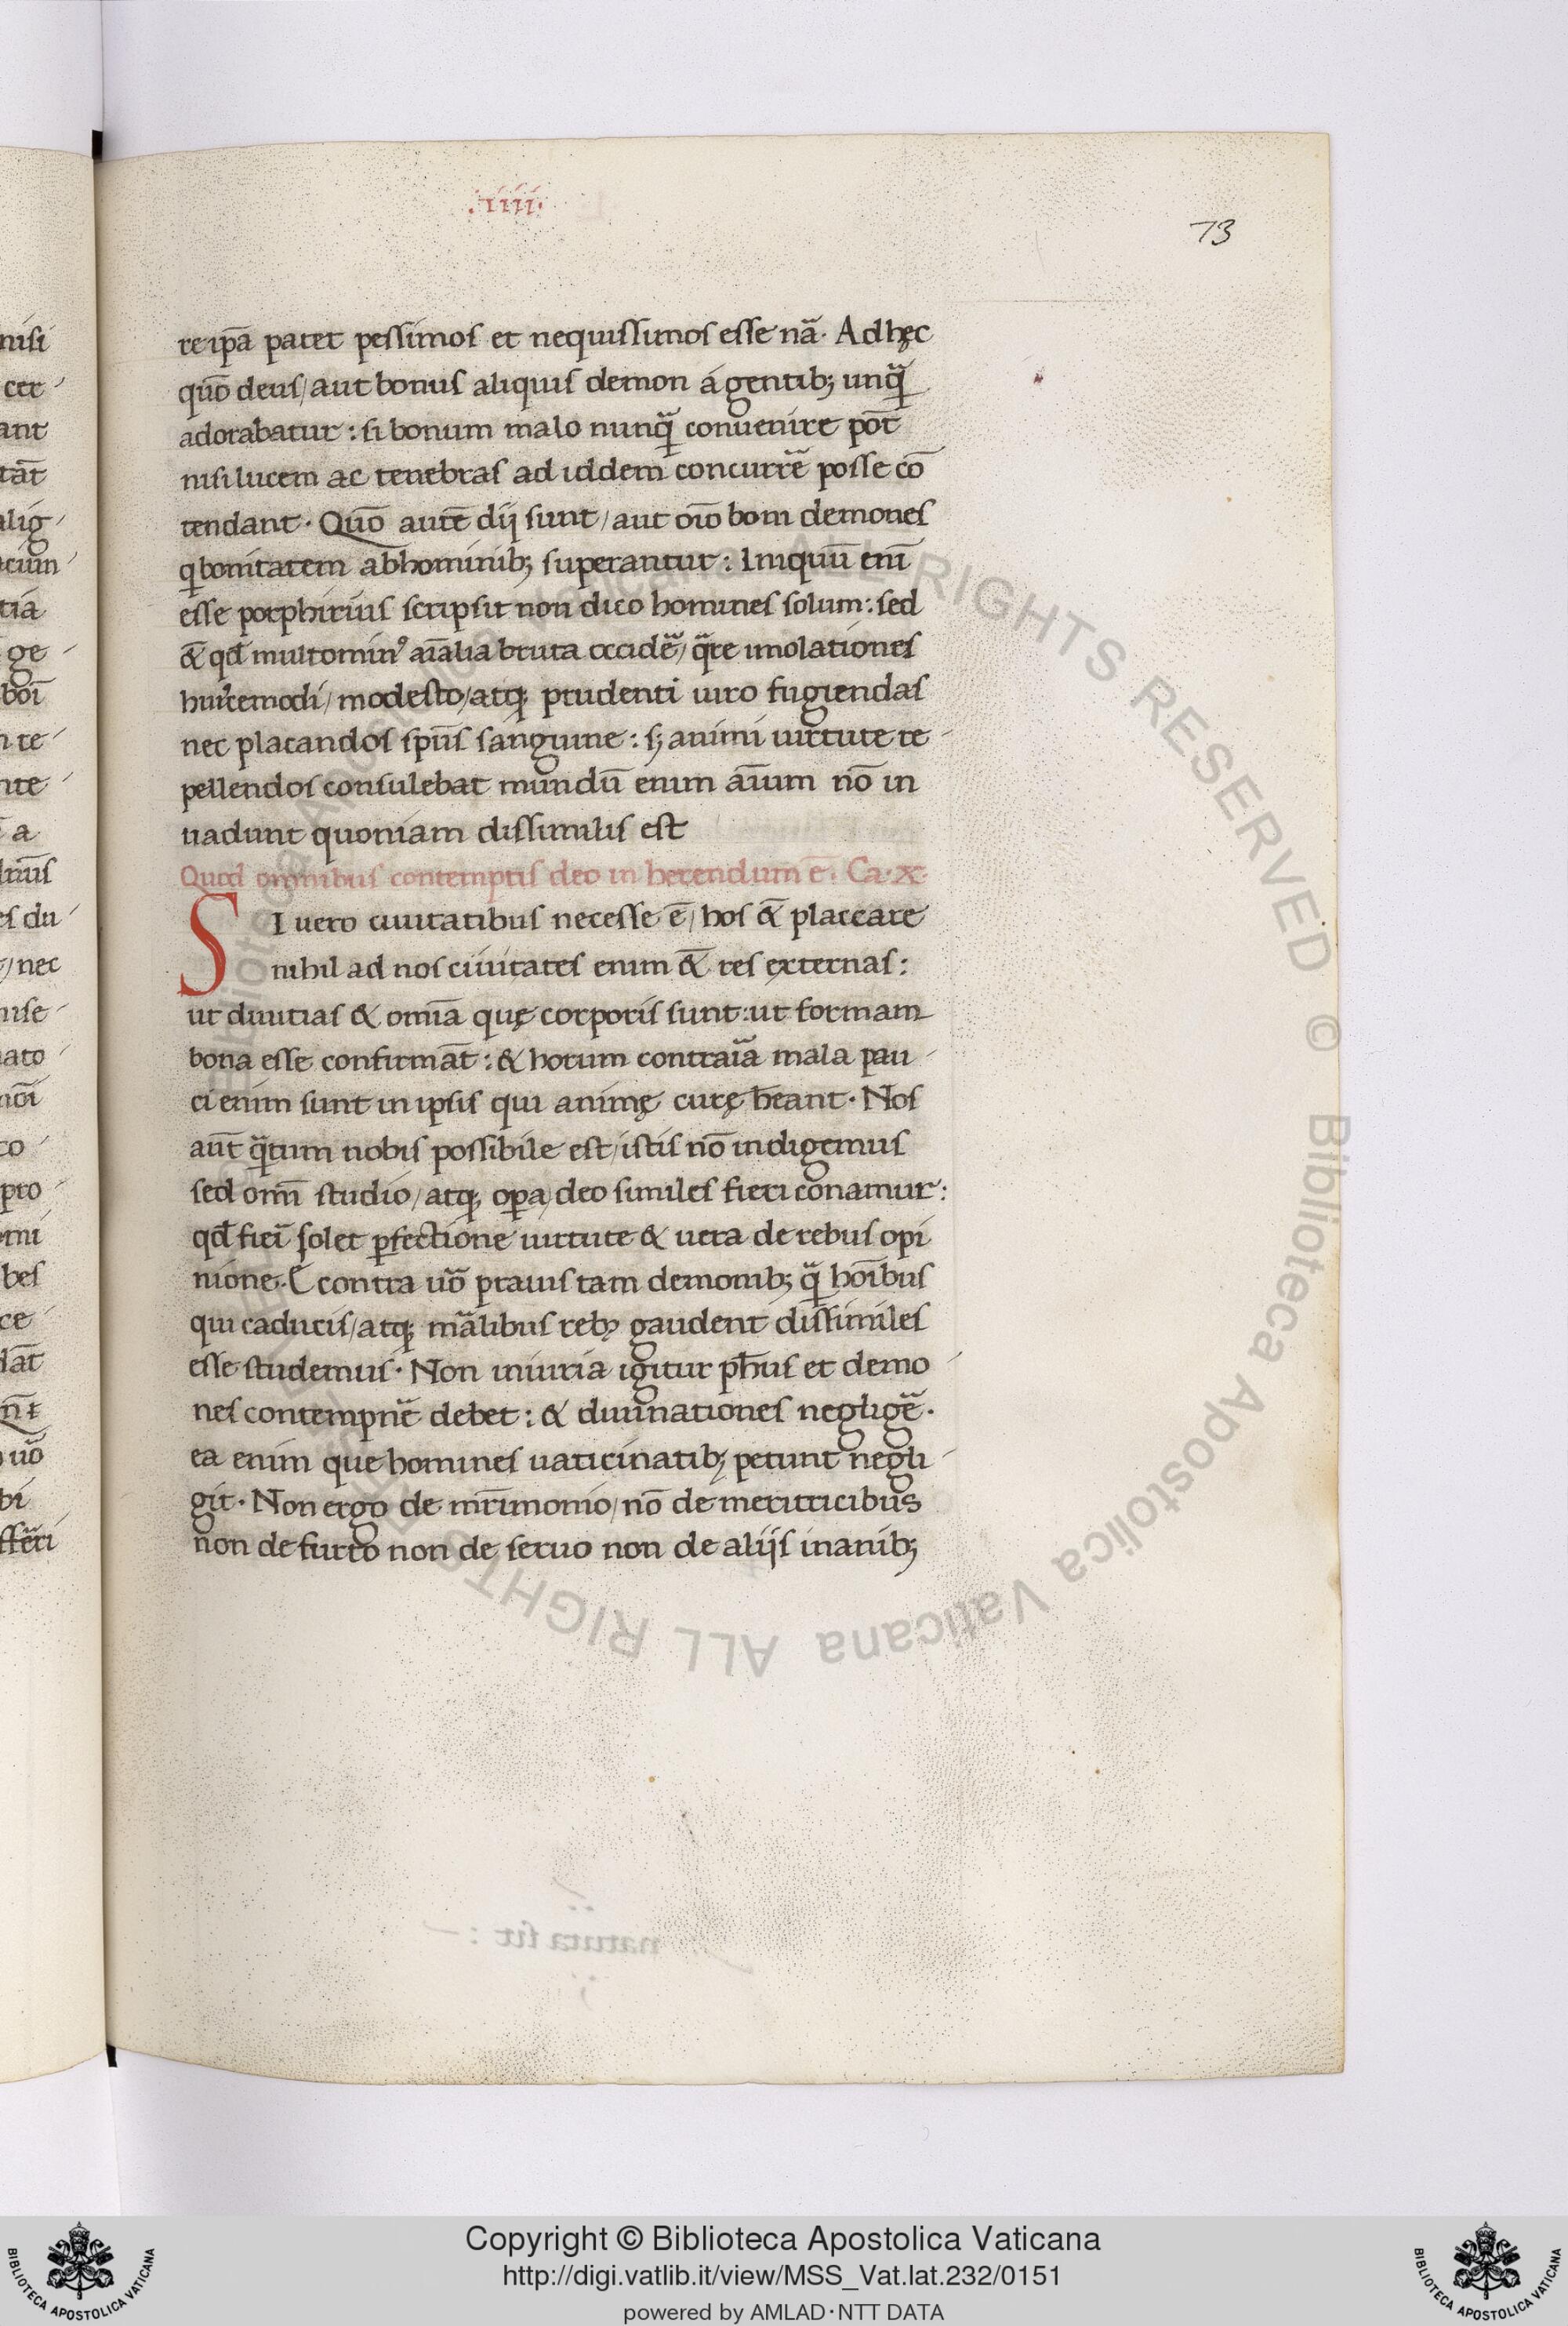 .iiii.
73
re ip̄a patet pessimos et nequissimos esse nā· Ad hęc
quō deus/ aut bonus aliquis demon á gentib; unq̄
adorabatur : si bonum malo nunq̄ conuenire pōt
nisi lucem ac tenebras ad iddem concurrē posse cō
tendant· Quō autē dij sunt/ aut oīo boni demones
qi bonitatem ab hominib; superantur : Iniquū enī
esse porphirius scripsit non dico homines solum : sed
& qđ multo min⁹ aīalia bruta occidē/ q̄re imolationes
huiꝰcemodi/ modesto/ atq; prudenti uiro fugiendas
nec placandos sp̄us sanguine : s; animi uirtute re-
pellendos consulebat mundū enim aīum nō in
uadunt quoniam dissimilis est
Quod omnibus contemptis deo in herendum ē. Ca·x·
SI uero ciuitatibus necesse ē/ hos & placcare
nihil ad nos ciuitates enim & res externas :
ut diuitias & omīa quę corporis sunt : ut formam
bona esse confirmāt : & horum contraīa mala pau-
ci enim sunt in ipsis qui animę curę h̄eant· Nos
aūt q̄tum nobis possibile est/ istis nō indigemus
sed omī studio/ atq; oꝑa/ deo similes fieri conamur :
qđ fieī solet ꝑfectione uirtute & uera de rebus opi
nione· E contra uō prauis tam demonib; q̄ hoībus
qui caducis/ atq; mālibus reb; gaudent dissimiles
esse studemus· Non iniuria igitur ph̄us et demo-
nes contempnē debet : & diuinationes negligē·
ea enim que homines uaticinatib; petunt negli-
git· Non ergo de mr̄imonio/ nō de meritricibus
non de furto non de seruo non de alijs inanib;
Copyright © Biblioteca Apostolica Vaticana
http://digi.vatlib.it/view/MSS_Vat.lat.232/0151
powered by AMLAD·NTT DATA